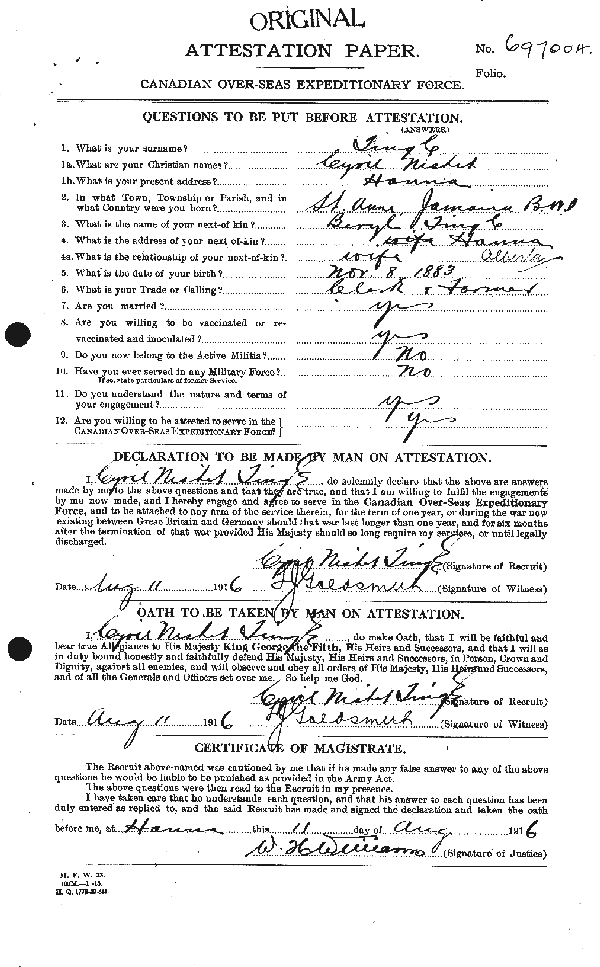 ORIGINAL
ATTESTATION PAPER.
No. 697004.
Folio.
CANADIAN OVER-SEAS EXPEDITIONARY FORCE.
QUESTIONS TO BE PUT BEFORE ATTESTATION.
(ANSWERS)
1. What is your surname? Tingle
1a. What are your Christian names? Cyril Nisbet
1b. What is your present address? Hanna
2. In what Town, Township or Parish, and in
what Country were you born? St Anns Jamaica B W I
3. What is the name of your next-of kin? Beryl Tingle
4. What is the address of your next of-kin? wife Hanna
Alberta
4a. What is the relationship of your next-of-kin? wife
5. What is the date of your birth? Nov 8, 1883
6. What is your Trade or Calling? Clerk & Farmer
7. Are you married? yes
8. Are you willing to be vaccinated or re-
vaccinated and inoculated? yes
9. Do you now belong to the Active Militia? No
10. Have you ever served in any Military Force? No
If so, state particulars of former Service.
11. Do you understand the nature and terms of
your engagement? yes
12. Are you willing to be attested to serve in the
CANADIAN OVER-SEAS EXPEDITIONARY FORCE? yes
DECLARATION TO BE MADE BY MAN ON ATTESTATION.
I, Cyril Nisbet Tingle, do solemnly declare that the above are answers
made by me to the above questions and that they are true, and that I am willing to fulfil the engagements
by me now made, and I hereby engage and agree to serve in the Canadian Over-Seas Expeditionary
Force, and to be attached to any arm of the service therein, for the term of one year, or during the war now
existing between Great Britain and Germany should that war last longer than one year, and for six months
after the termination of that war provided His Majesty should so long require my services, or until legally
discharged.
Cyril Nisbet Tingle (Signature of Recruit)
Date Aug 11 1916 Goldsmith (Signature of Witness)
OATH TO BE TAKEN BY MAN ON ATTESTATION.
I, Cyril Nisbet Tingle, do make Oath, that I will be faithful and
bear true Allegiance to His Majesty King George the Fifth, His Heirs and Successors, and that I will as
in duty bound honestly and faithfully defend His Majesty, His Heirs and Successors, in Person, Crown and
Dignity, against all enemies, and will observe and obey all orders of His Majesty, His Heirs and Successors,
and of all the Generals and Officers set over me. So help me God.
Cyril Nisbet Tingle (Signature of Recruit)
Date Aug 11 1916 Goldsmith (Signature of Witness)
CERTIFICATE OF MAGISTRATE.
The Recruit above-named was cautioned by me that if he made any false answer to any of the above
questions he would be liable to be punished as provided in the Army Act.
The above questions were then read to the Recruit in my presence.
I have taken care that he understands each question, and that his answer to each question has been
duly entered as replied to, and the said Recruit has made and signed the declaration and taken the oath
before me, at Hanna this 11 day of Aug 1916
W. H. Williams (Signature of Justice)
M. F. W. 23.